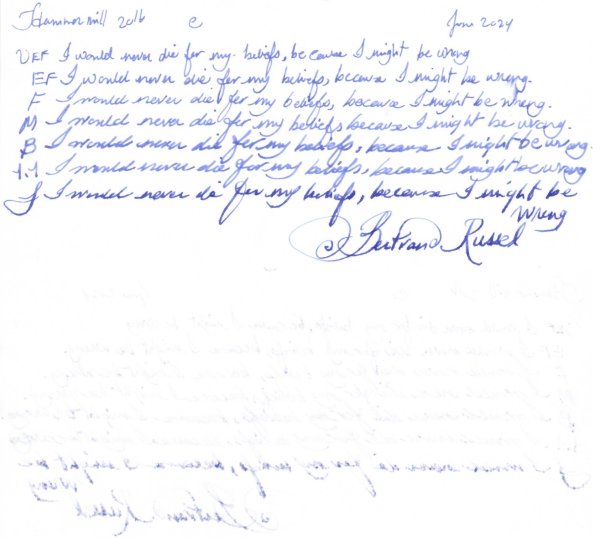 Hammermill 20lb e June 2024
VEF I would never die for my beliefs, because I might be wrong
EF I would never die for my beliefs, because I might be wrong.
F I would never die for my beliefs, because I might be wrong.
M I would never die for my beliefs because I might be wrong.
B I would never die for my beliefs, because I might be wrong.
1.1 I would never die for my beliefs, because I might be wrong
J I would never die for my beliefs, because I might be
wrong
Bertrand Russel